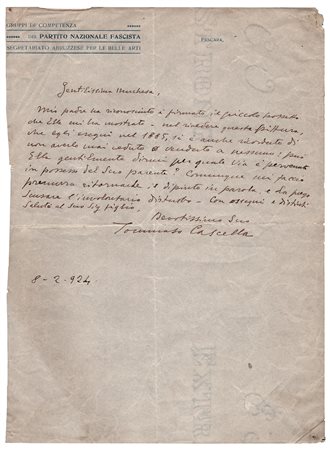 GRUPPI DI COMPETENZA
DEL PARTITO NAZIONALE FASCISTA
SEGRETARIATO ABRUZZESE PER LE BELLE ARTI
PESCARA,
Gentilissima Marchesa,
Mio padre ha riconosciuto e firmato, il piccolo
che Ella mi ha mostrato - nel rivedere questa pittura,
che egli eseguì nel 1885, si è anche ricordato di
non averlo mai ceduto o venduto a nessuno; può
Ella gentilmente dirmi per quale via è pervenuto
in possesso del Suo parente? Comunque mi faccio
premura ritornarle, il dipinto in parola, e la prego
scusare l'involontario disturbo - Con ossequi e distinti
saluti al suo Sig. figlio,
Devotissimo Suo
Tommaso Cascella
8-2-924